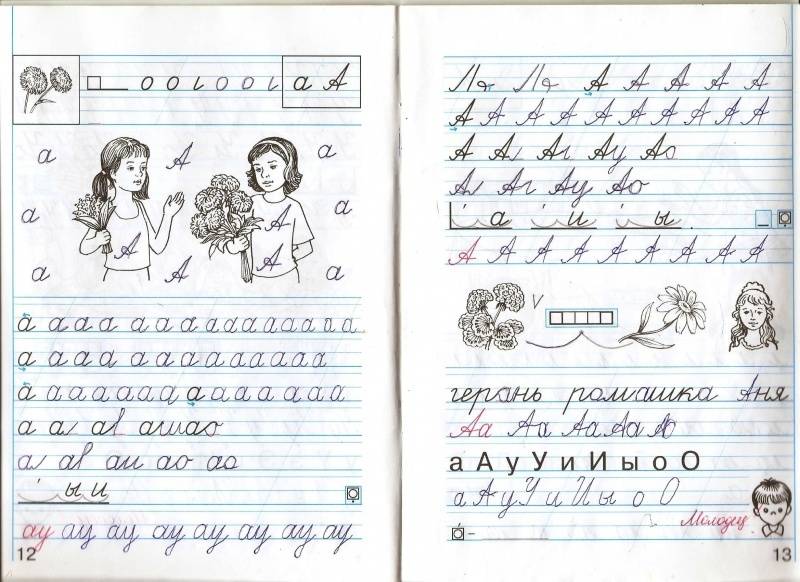 а А
а А а
а А А а
а А А а
а а а а а а а а а а а а а а а а
а а а а а а а а а а а а а а
а а а а а а а а а а а а а а а
а а
ао ао
ы и
ау ау ау ау ау ау ау ау
12
А А А А А
А А А А А А А А А А А
А А Аг Ау Ао
А Аг Ау Ао
а и ы
А А А А А А А А А А
герань ромашка Аня
Аа Аа Аа Аа Аа
а А у У и И ы о О
а А у У и И ы о О
Молодец
13